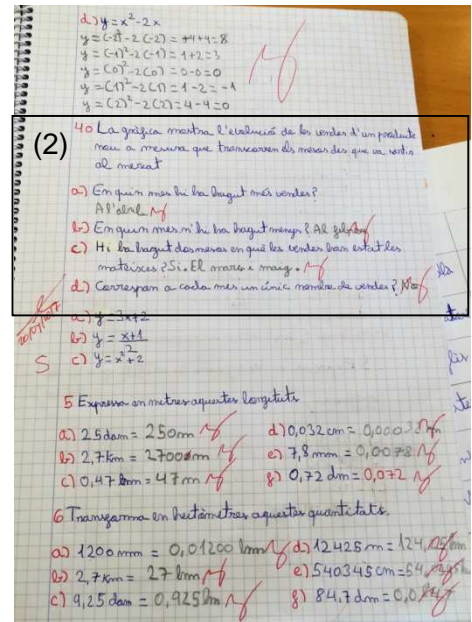 d) y = x² - 2x
y = (-2)² - 2(-2) = +4+4 = 8
y = (-1)² - 2(-1) = 1+2 = 3
y = (0)² - 2(0) = 0-0 = 0
y = (1)² - 2(1) = 1-2 = -1
y = (2)² - 2(2) = 4-4 = 0
(2)
40 La gràfica mostra l'evolució de les vendes d'un producte
nou a mesura que transcorren els mesos des que va sortir
al mercat
a) En quin mes hi ha hagut més vendes?
A l'abril
b) En quin mes n'hi ha hagut menys? Al febrer
c) Hi ha hagut dos mesos en què les vendes han estat les
mateixes? Si. El març i maig.
d) Correspon a cada mes un únic nombre de vendes? No
20/07/2017
a) y = 3x+2
b) y = x+1/2
S c) y = x²+2
5 Expressa en metres aquestes longituts
a) 25 dam = 250m d) 0,032 cm =
b) 2,7 Km = 2700m e) 7,8 mm = 0,0078
c) 0,47 hm = 47 m f) 0,72 dm = 0,072
6 Transforma en hectòmetres aquestes quantitats.
a) 1200 mm = 0,01200 hm d) 12425 m =
b) 2,7 Km = 27 hm e) 540345 cm =
c) 9,25 dam = 0,925 hm f) 84,7 dm =